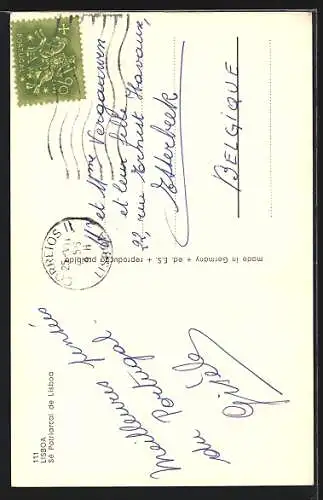 111
LISBOA
Sé Patriarcal de Lisboa
Meilleures pensées
du Portugal.
Gisèle
made in Germany + ed. F.S. + reprodução proibida
CORREIOS
LISBOA
Mr et Mme Vergauwen
et leur fille
22, rue Ernest Havaux,
Etterbeek
BELGIQUE